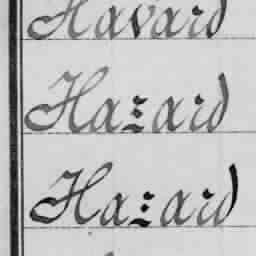 Havard
Hazard
Hazard